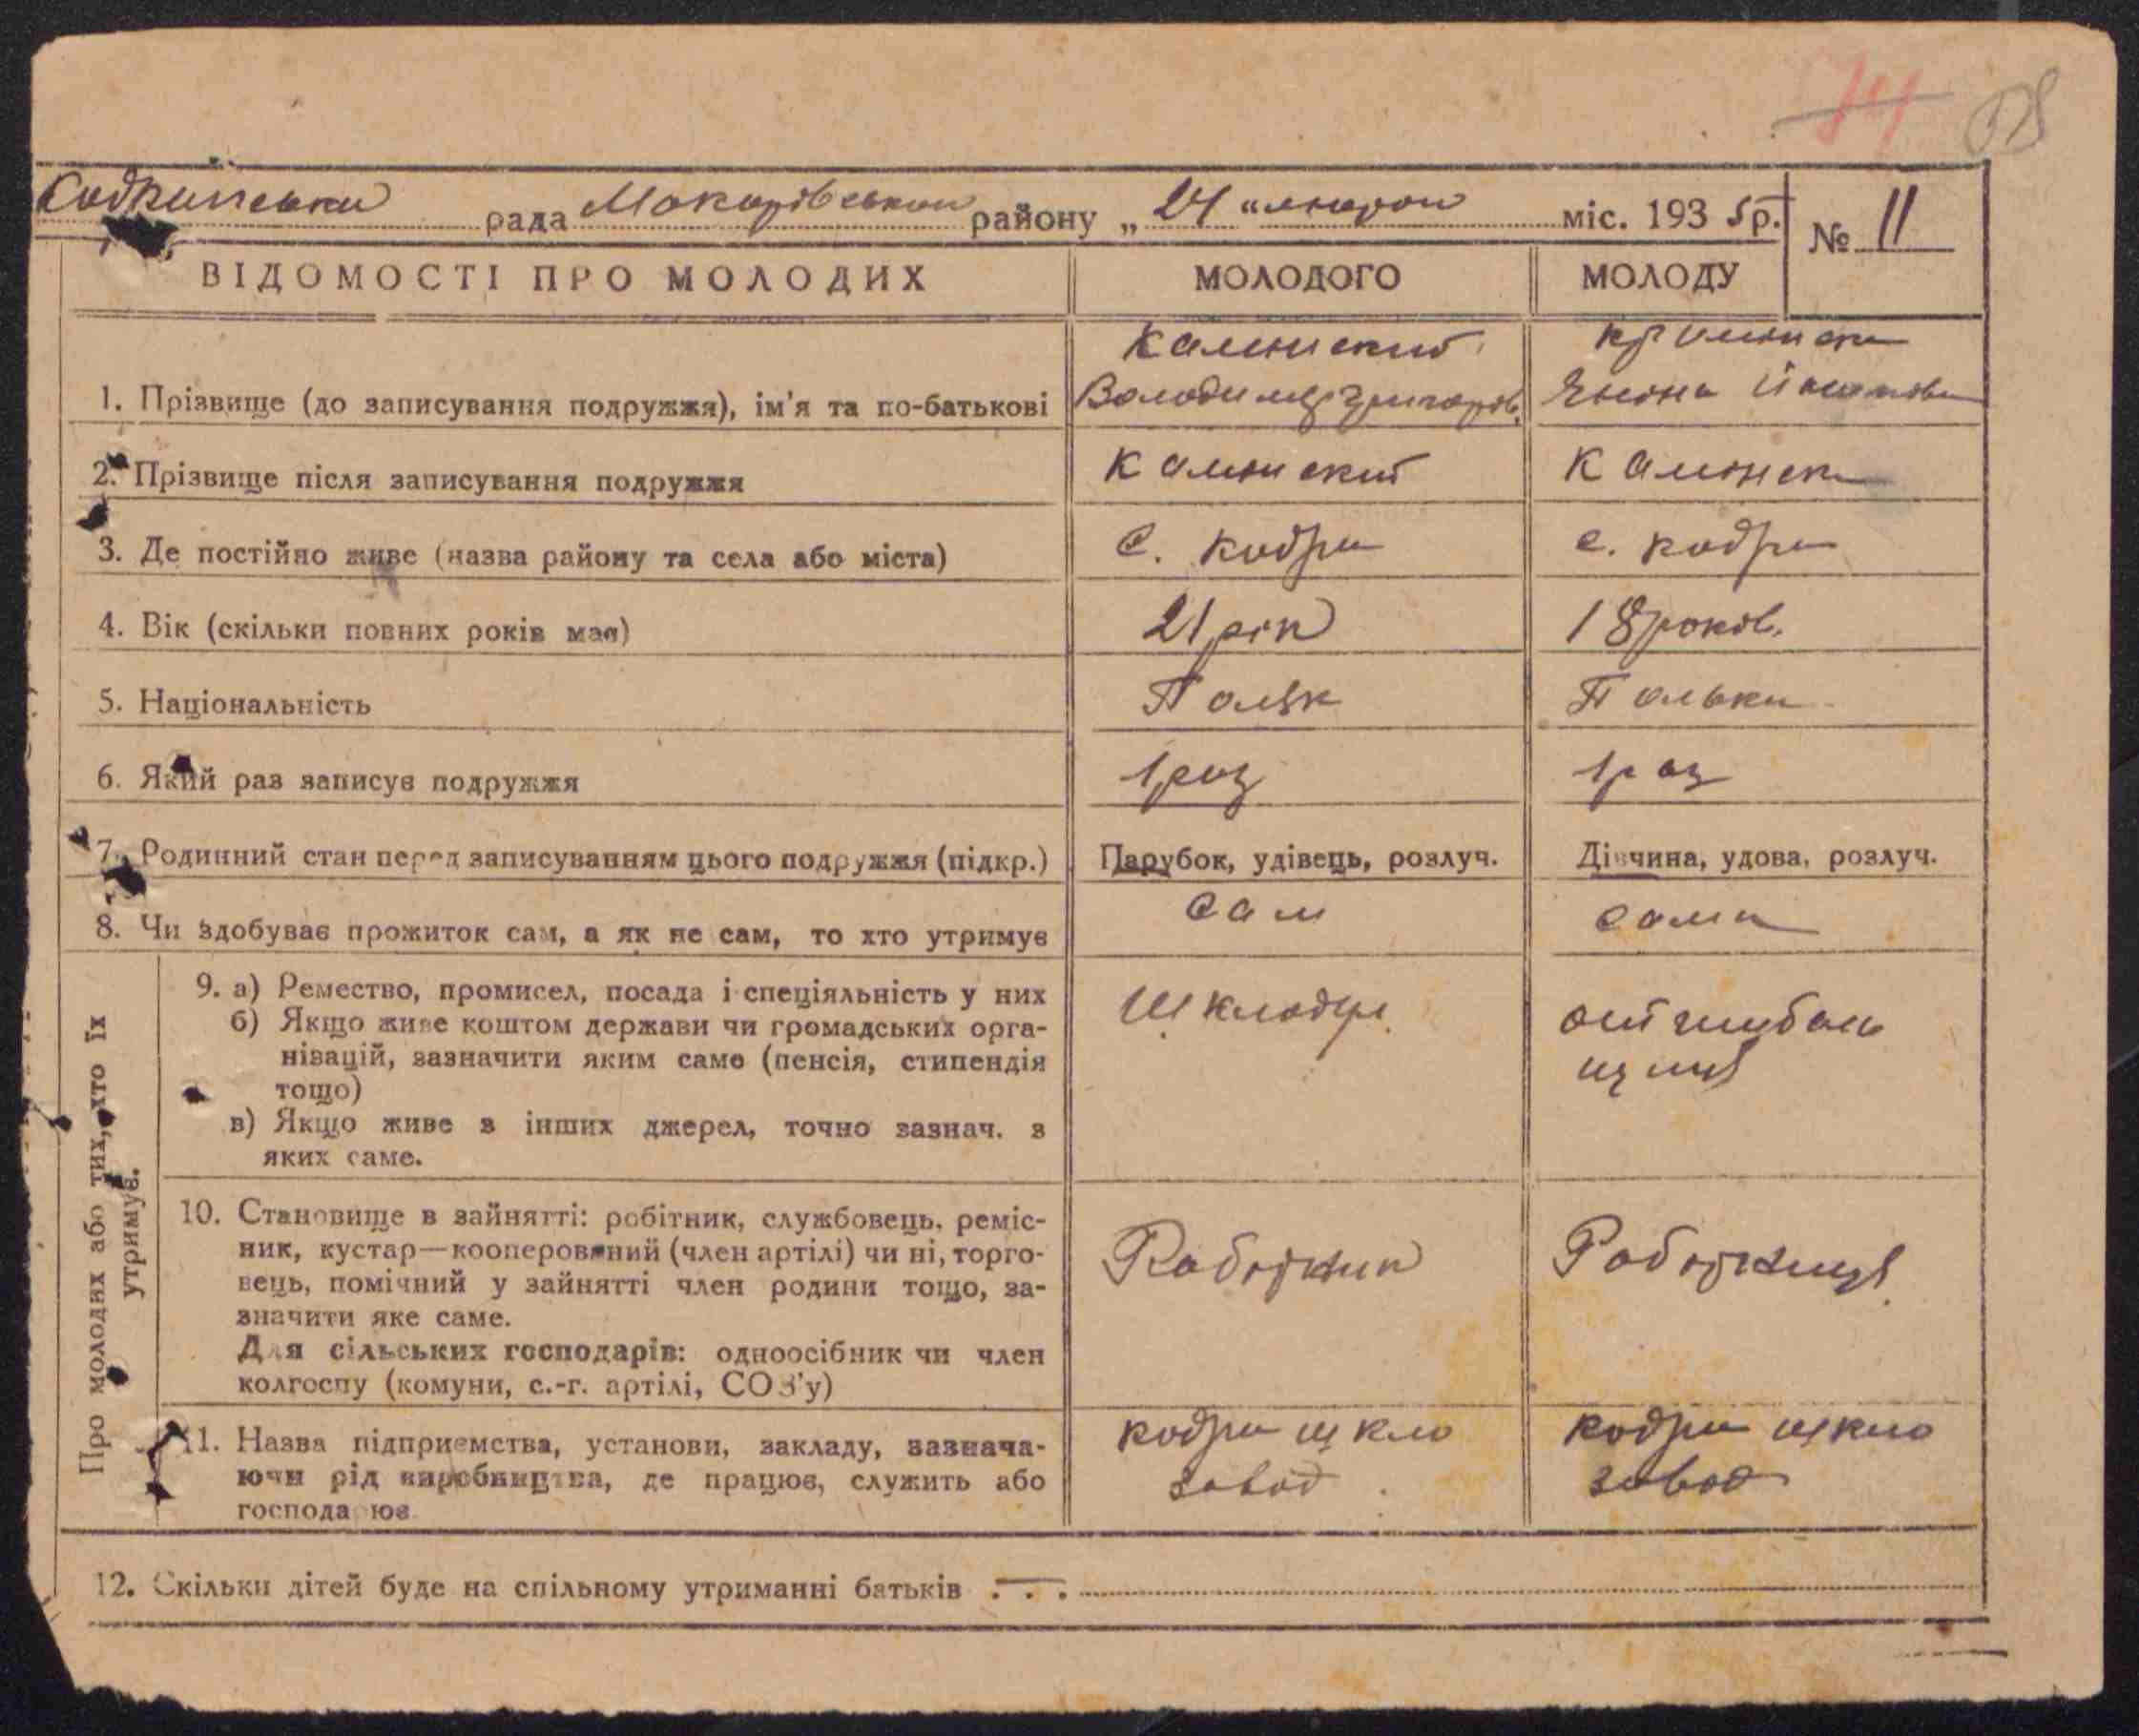 74 58
Кодринська рада Макарівського району „ 24 " лютого міс. 1935 р. № 11
ВІДОМОСТІ ПРО МОЛОДИХ МОЛОДОГО МОЛОДУ
Каминский
1. Прізвище (до записування подружжя), ім'я та по-батькові Володимир Григоров.
2. Прізвище після записування подружжя Каминский Каминск
3. Де постійно живе (назва району та села або міста) с. Кодри с. Кодри
4. Вік (скільки повних років має) 21 рік 18 років.
5. Національність Поляк Полька
6. Який раз записує подружжя 1 раз 1 раз
7. Родинний стан перед записуванням цього подружжя (підкр.) Парубок, удівець, розлуч. Дівчина, удова, розлуч.
8. Чи здобуває прожиток сам, а як не сам, то хто утримує сам сама
Про молодих або тих, хто їх утримує.
9. а) Ремество, промисел, посада і спеціяльність у них Шклодув
б) Якщо живе коштом держави чи громадських орга-
нізацій, зазначити яким саме (пенсія, стипендія
тощо)
в) Якщо живе з інших джерел, точно зазнач. з
яких саме.
10. Становище в зайнятті: робітник, службовець, реміс-
ник, кустар—кооперований (член артілі) чи ні, торго- Робітник Робітниця
вець, помічний у зайнятті член родини тощо, за-
значити яке саме.
Для сільських господарів: одноосібник чи член
колгоспу (комуни, с.-г. артілі, СОЗ'у)
11. Назва підприємства, установи, закладу, зазнача- Кодри шкло Кодри шкло
ючи рід виробництва, де працює, служить або завод завод
господарює
12. Скільки дітей буде на спільному утриманні батьків . . . —